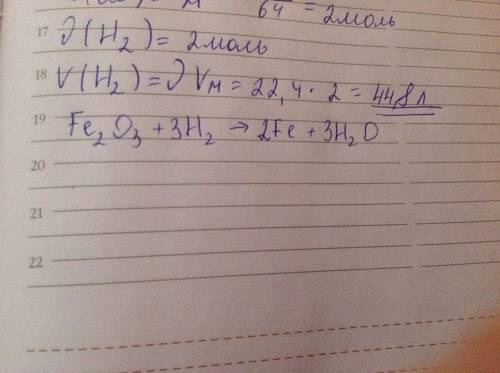 64 = 2моль
17 ν(H₂) = 2моль
18 V(H₂) = νVм = 22,4 · 2 = 44,8 л
19 Fe₂O₃ + 3H₂ → 2Fe + 3H₂O
20
21
22